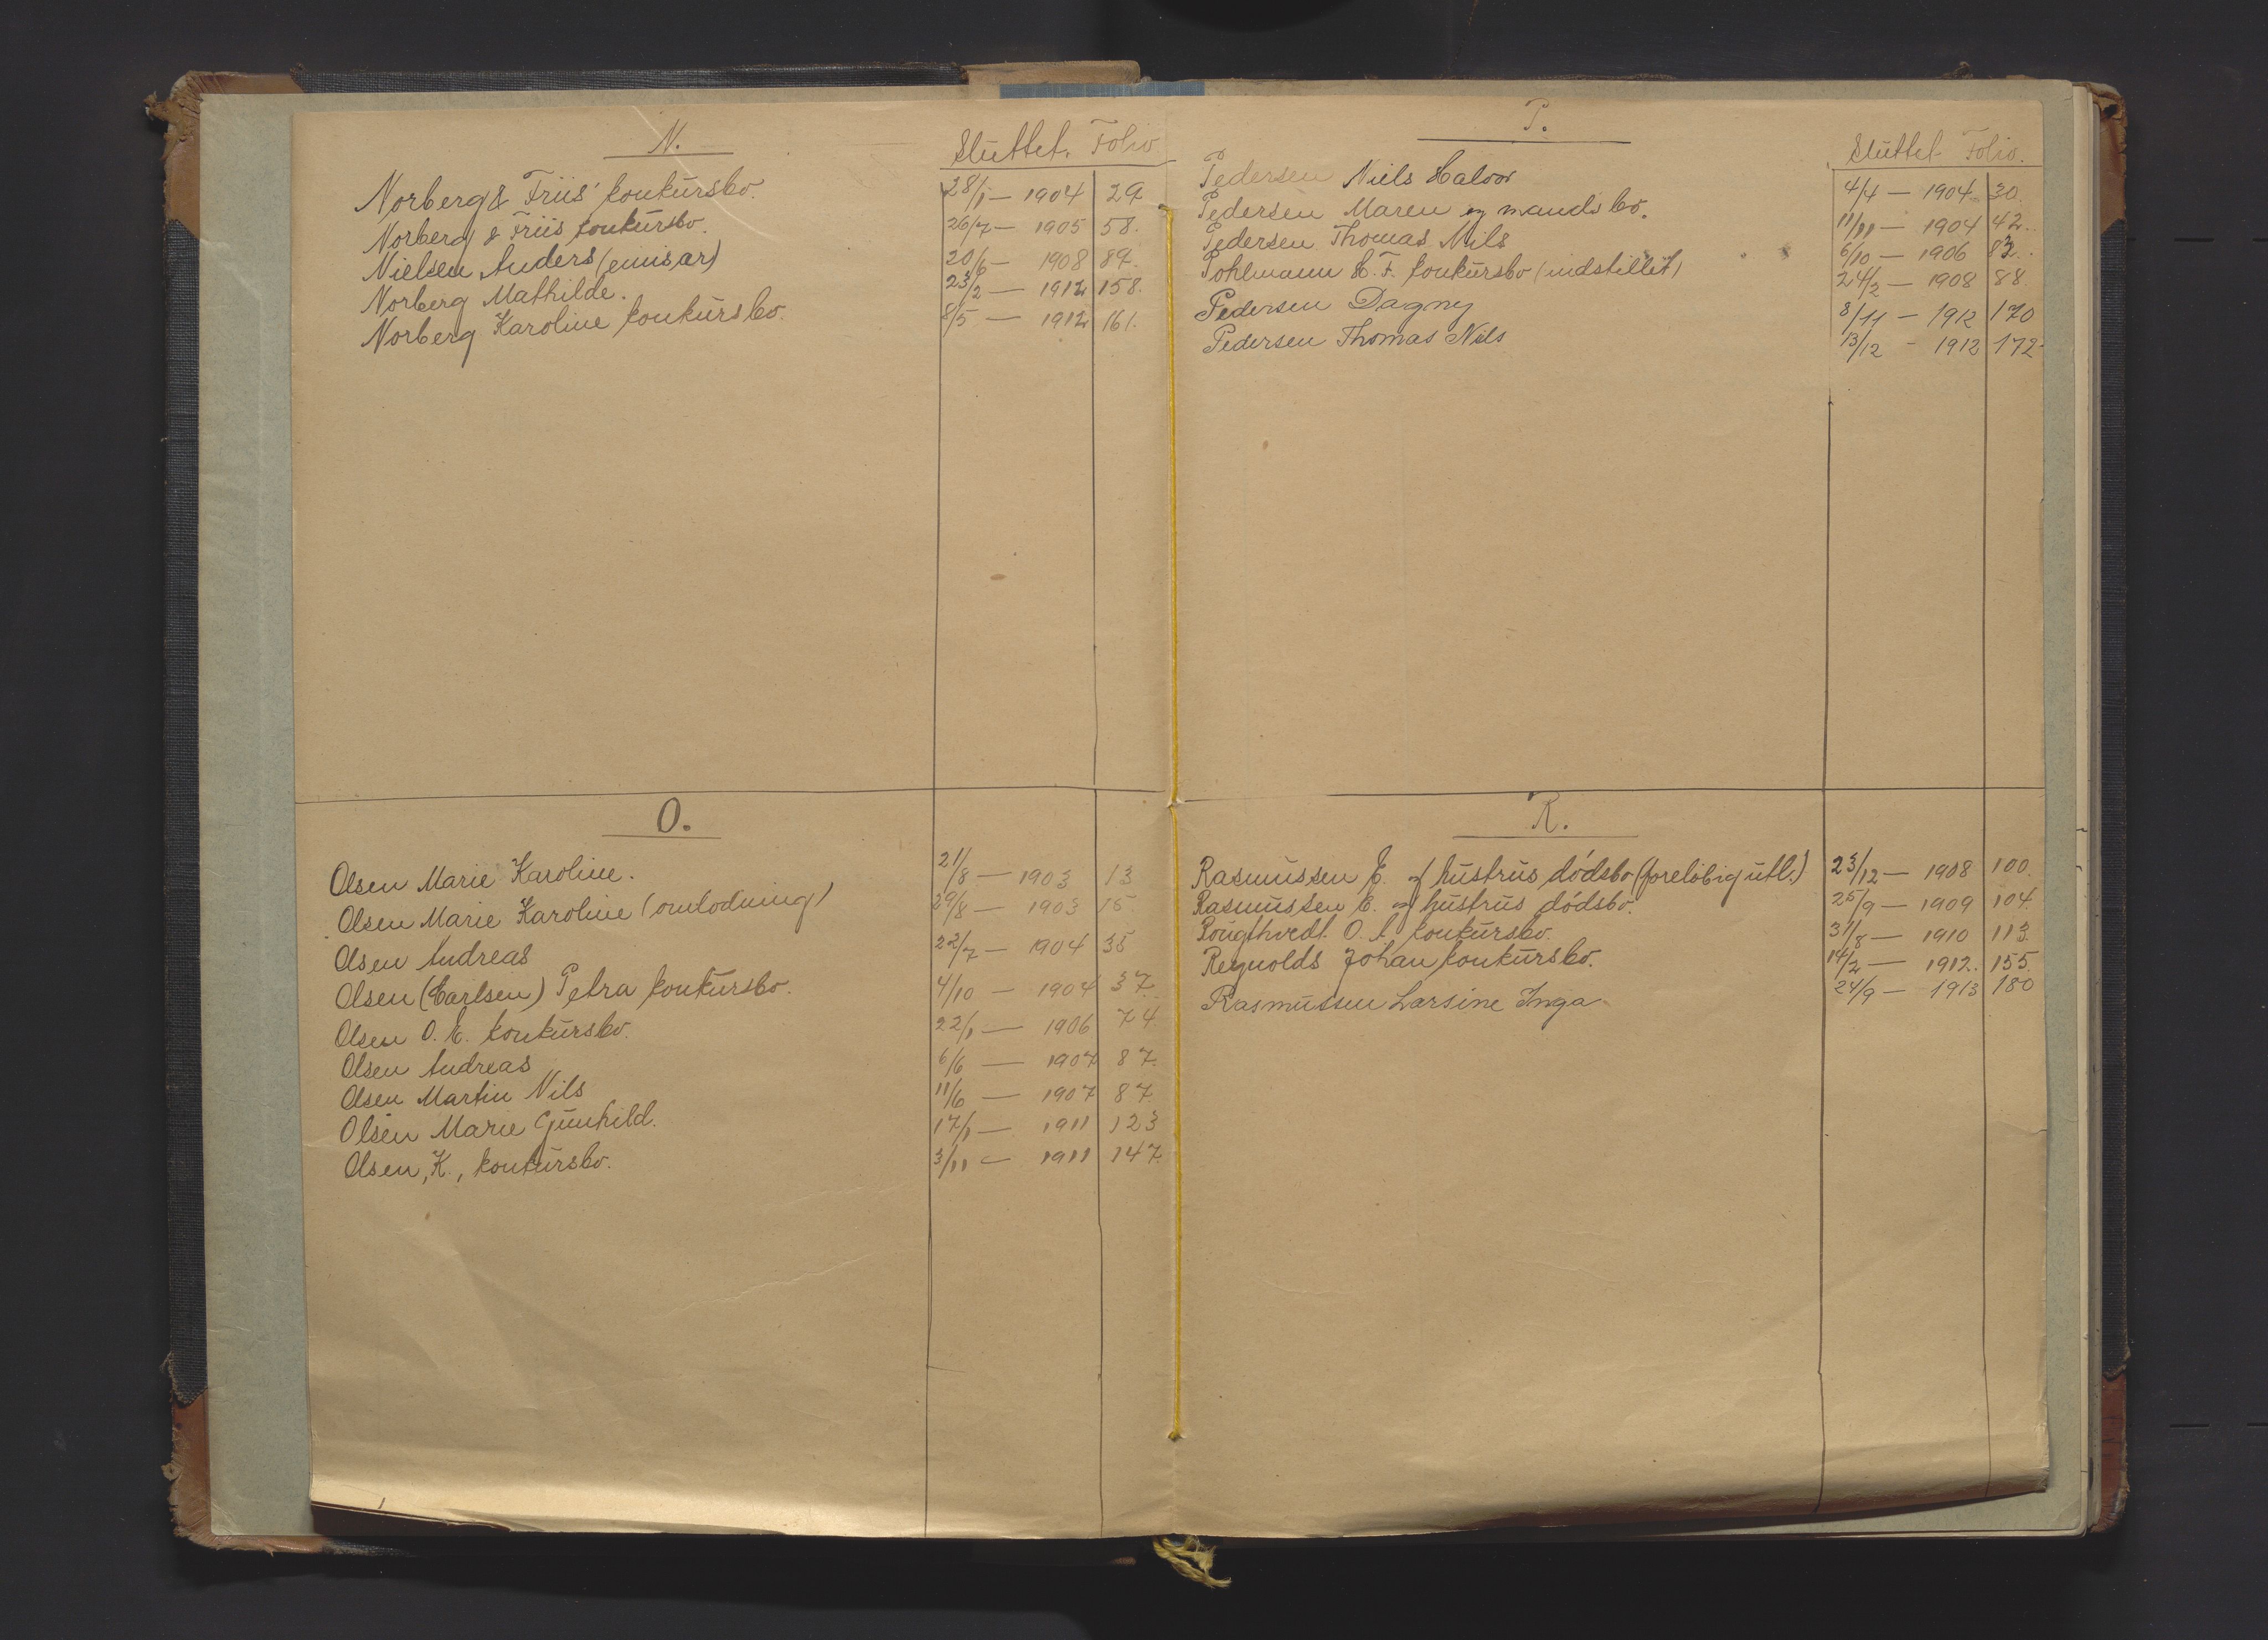 N.
Sluttet. Folio.
Norberg & Friis' konkursbo. 28/1 — 1904 29
Norberg & Friis konkursbo. 26/7 — 1905 58.
Nielsen Anders (emisær) 20/6 — 1908 84.
Norberg Mathilde. 23/2 — 1912 158.
Norberg Karoline konkursbo. 8/5 — 1912 161.
O.
Olsen Marie Karoline. 21/8 — 1903 13
Olsen Marie Karoline (omlodning) 29/8 — 1903 15
Olsen Andreas 22/7 — 1904 35
Olsen (Carlsen) Petra konkursbo. 4/10 — 1904 37.
Olsen O. E. konkursbo. 22/1 — 1906 74
Olsen Andreas 6/6 — 1907 87.
Olsen Martin Nils 11/6 — 1907 87
Olsen Marie Gunhild. 17/1 — 1911 123
Olsen, K., konkursbo. 3/11 — 1911 147.
P.
Sluttet Folio.
Pedersen Niels Halvor 4/4 — 1904 30
Pedersen Maren og mands bo. 11/11 — 1904 42.
Pedersen Thomas Nils 6/10 — 1906 82.
Pohlmann H. F. konkursbo (indstillet) 24/2 — 1908 88.
Pedersen Dagny 8/11 — 1912 170
Pedersen Thomas Nils 13/12 - 1912 172
R.
Rasmussen E. og hustrus dödsbo (foreløbig utl.) 23/12 — 1908 100.
Rasmussen E. og hustrus dödsbo. 25/9 — 1909 104.
O. A. konkursbo. 31/8 — 1910 113.
Reynolds Johan konkursbo. 14/2 — 1912. 155.
Rasmussen Larsine Inga 24/9 — 1913 180